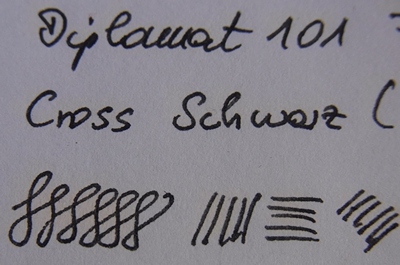 Diplomat 101
Cross Schwarz (